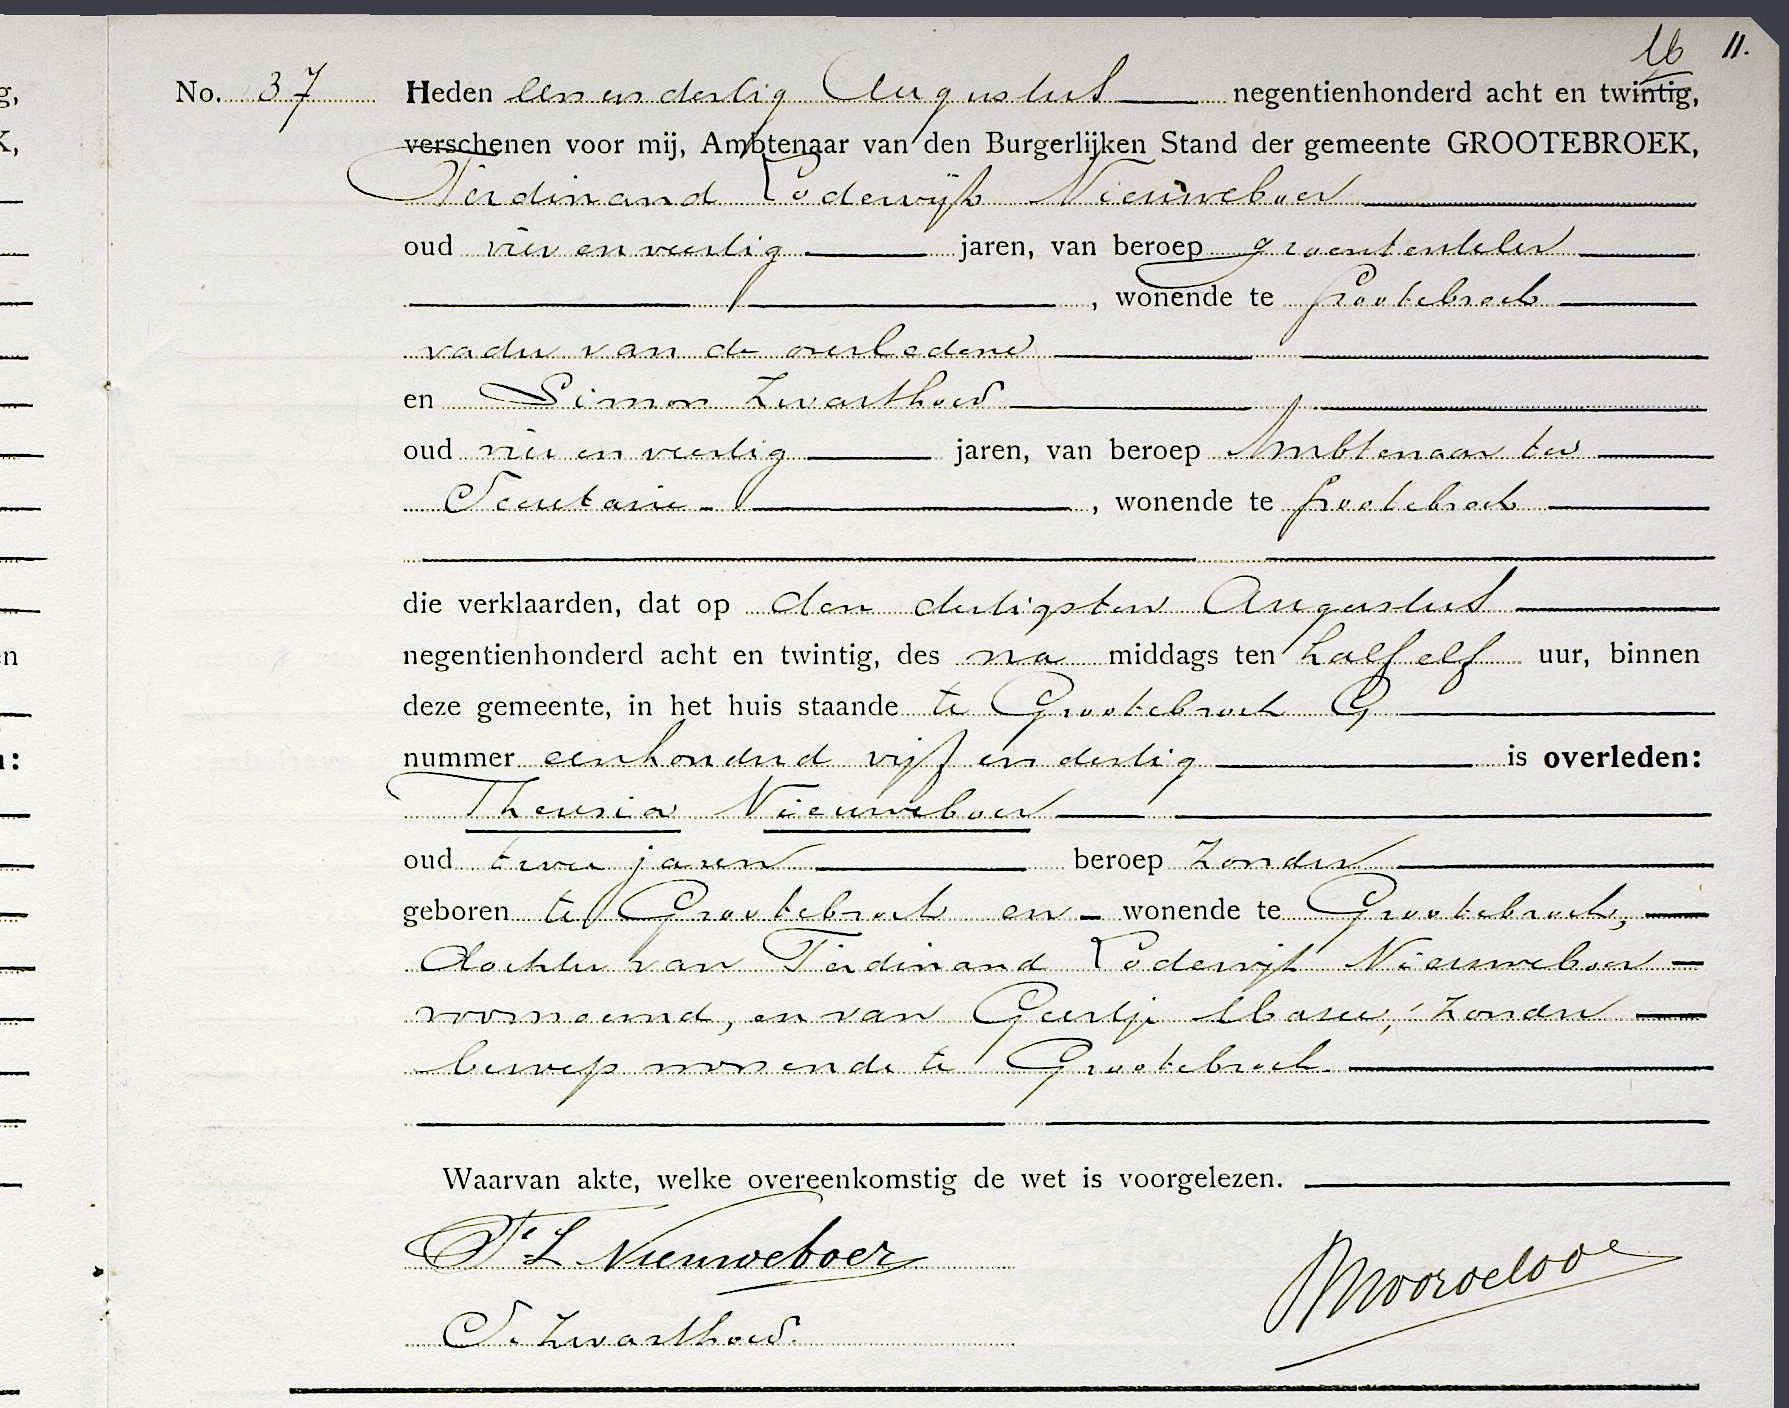 16 11.
No. 37 Heden een en dertig Augustus negentienhonderd acht en twintig,
verschenen voor mij, Ambtenaar van den Burgerlijken Stand der gemeente GROOTEBROEK,
Ferdinand Lodewijk Nieuweboer
oud vier en veertig jaren, van beroep groententeler
, wonende te Grootebroek
vader van de overledene
en Simon Zwarthoed
oud vier en veertig jaren, van beroep Ambtenaar ter
Secretarie , wonende te Grootebroek
die verklaarden, dat op den dertigsten Augustus
negentienhonderd acht en twintig, des na middags ten half elf uur, binnen
deze gemeente, in het huis staande te Grootebroek G
nummer eenhonderd vijf en dertig is overleden:
Theresia Nieuweboer
oud twee jaren beroep zonder
geboren te Grootebroek en wonende te Grootebroek,
dochter van Ferdinand Lodewijk Nieuweboer
voornoemd, en van Geertje , zonder
beroep wonende te Grootebroek.
Waarvan akte, welke overeenkomstig de wet is voorgelezen.
F. L Nieuweboer
S. Zwarthoed.